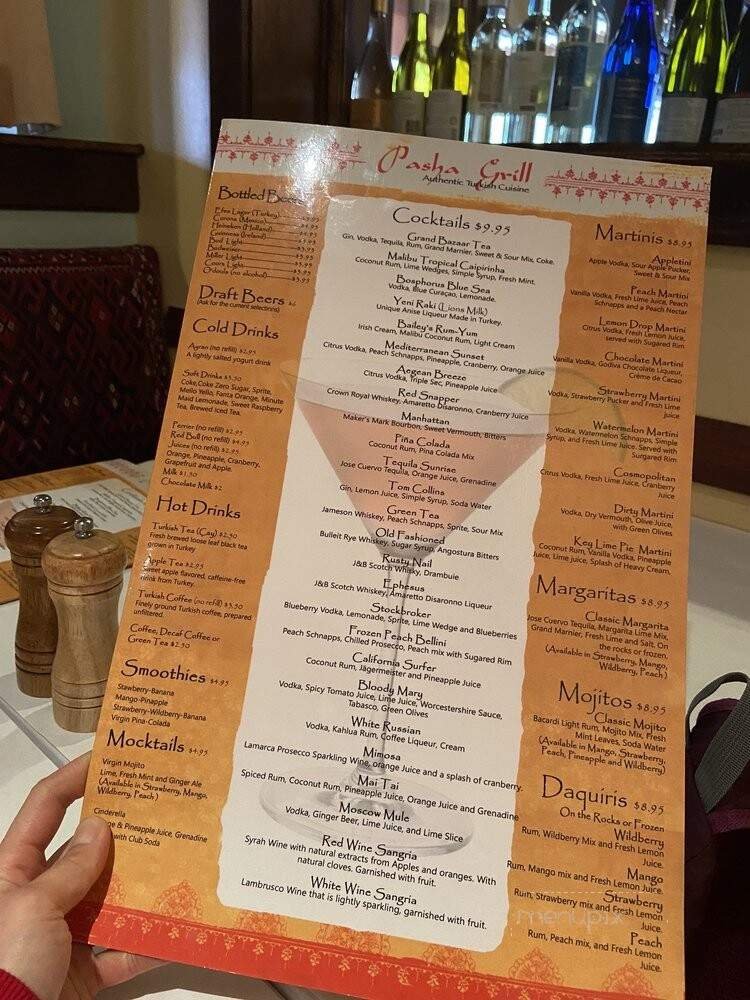 Pasha Grill
Authentic Turkish Cuisine
Bottled Beers
Efes Lager (Turkey)
Corona (Mexico)
Heineken (Holland)
Guinness (Ireland)
Bud Light
Budweiser
Miller Light
Coors Light $5.95
Ordouls (no alcohol) $5.95
Draft Beers $6
(Ask for the current selections)
Cold Drinks
Ayran (no refill) $2.95
A lightly salted yogurt drink
Soft Drinks $3.50
Coke, Coke Zero Sugar, Sprite,
Mello Yello, Fanta Orange, Minute
Maid Lemonade, Sweet Raspberry
Tea, Brewed Iced Tea.
Perrier (no refill) $2.95
Red Bull (no refill) $4.95
Juices (no refill) $2.95
Orange, Pineapple, Cranberry,
Grapefruit and Apple.
Milk $1.50
Chocolate Milk $2
Hot Drinks
Turkish Tea (Cay) $2.50
Fresh brewed loose leaf black tea
grown in Turkey
Apple Tea $2.95
Sweet apple flavored, caffeine-free
drink from Turkey.
Turkish Coffee (no refill) $3.50
Finely ground Turkish coffee, prepared
unfiltered.
Coffee, Decaf Coffee or
Green Tea $2.50
Smoothies $4.95
Stawberry-Banana
Mango-Pinapple
Strawberry-Wildberry-Banana
Virgin Pina-Colada
Mocktails $4.95
Virgin Mojito
Lime, Fresh Mint and Ginger Ale
(Available in Strawberry, Mango,
Wildberry, Peach )
Cinderella
& Pineapple Juice, Grenadine
with Club Soda
Cocktails $9.95
Grand Bazaar Tea
Gin, Vodka, Tequila, Rum, Grand Marnier, Sweet & Sour Mix, Coke.
Malibu Tropical Caipirinha
Coconut Rum, Lime Wedges, Simple Syrup, Fresh Mint.
Bosphorus Blue Sea
Vodka, Blue Curaçao, Lemonade.
Yeni Raki (Lions Milk)
Unique Anise Liqueur Made in Turkey.
Bailey's Rum-Yum
Irish Cream, Malibu Coconut Rum, Light Cream
Mediterranean Sunset
Citrus Vodka, Peach Schnapps, Pineapple, Cranberry, Orange Juice
Aegean Breeze
Citrus Vodka, Triple Sec, Pineapple Juice
Red Snapper
Crown Royal Whiskey, Amaretto Disaronno, Cranberry Juice
Manhattan
Maker's Mark Bourbon, Sweet Vermouth, Bitters
Piña Colada
Coconut Rum, Pina Colada Mix
Tequila Sunrise
Jose Cuervo Tequila, Orange Juice, Grenadine
Tom Collins
Gin, Lemon Juice, Simple Syrup, Soda Water
Green Tea
Jameson Whiskey, Peach Schnapps, Sprite, Sour Mix
Old Fashioned
Bulleit Rye Whiskey, Sugar Syrup, Angostura Bitters
Rusty Nail
J&B Scotch Whisky, Drambuie
Ephesus
J&B Scotch Whiskey, Amaretto Disaronno Liqueur
Stockbroker
Blueberry Vodka, Lemonade, Sprite, Lime Wedge and Blueberries
Frozen Peach Bellini
Peach Schnapps, Chilled Prosecco, Peach mix with Sugared Rim
California Surfer
Coconut Rum, Jägermeister and Pineapple Juice
Bloody Mary
Vodka, Spicy Tomato Juice, Lime Juice, Worcestershire Sauce,
Tabasco, Green Olives
White Russian
Vodka, Kahlua Rum, Coffee Liqueur, Cream
Mimosa
Lamarca Prosecco Sparkling Wine, orange Juice and a splash of cranberry.
Mai Tai
Spiced Rum, Coconut Rum, Pineapple Juice, Orange Juice and Grenadine
Moscow Mule
Vodka, Ginger Beer, Lime Juice, and Lime Slice
Red Wine Sangria
Syrah Wine with natural extracts from Apples and oranges. With
natural cloves. Garnished with fruit.
White Wine Sangria
Lambrusco Wine that is lightly sparkling, garnished with fruit.
Martinis $8.95
Appletini
Apple Vodka, Sour Apple Pucker,
Sweet & Sour Mix
Peach Martini
Vanilla Vodka, Fresh Lime Juice, Peach
Schnapps and a Peach Nectar
Lemon Drop Martini
Citrus Vodka, Fresh Lemon Juice,
served with Sugared Rim
Chocolate Martini
Vanilla Vodka, Godiva Chocolate Liqueur,
Crème de Cacao
Strawberry Martini
Vodka, Strawberry Pucker and Fresh Lime
juice
Watermelon Martini
Vodka, Watermelon Schnapps, Simple
Syrup, and Fresh Lime Juice. Served with
Surgared Rim
Cosmopolitan
Citrus Vodka, Fresh Lime Juice, Cranberry
Juice
Dirty Martini
Vodka, Dry Vermouth, Olive Juice,
with Green Olives
Key Lime Pie Martini
Coconut Rum, Vanilla Vodka, Pineapple
Juice, Lime juice, Splash of Heavy Cream,
Margaritas $8.95
Classic Margarita
Jose Cuervo Tequila, Margarita Lime Mix,
Grand Marnier, Fresh Lime and Salt. On
the rocks or frozen.
(Available in Strawberry, Mango,
Wildberry, Peach )
Mojitos $8.95
Classic Mojito
Bacardi Light Rum, Mojito Mix, Fresh
Mint Leaves, Soda Water
(Available in Mango, Strawberry,
Peach, Pineapple and Wildberry)
Daquiris $8.95
On the Rocks or Frozen
Wildberry
Rum, Wildberry Mix and Fresh Lemon
Juice.
Mango
Rum, Mango mix and Fresh Lemon Juice.
Strawberry
Rum, Strawberry mix and Fresh Lemon
Juice.
Peach
Rum, Peach mix, and Fresh Lemon
Juice.
menupix